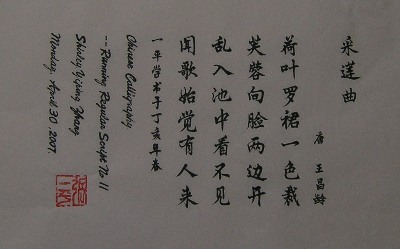 采莲曲
唐 王昌龄
荷叶罗裙一色裁
芙蓉向脸两边开
乱入池中看不见
闻歌始觉有人来
一平学书于丁亥年春
Chinese Calligraphy
-- Running Regular Script No 11
Shirley Yiping Zhang
Monday, April 30, 2007.